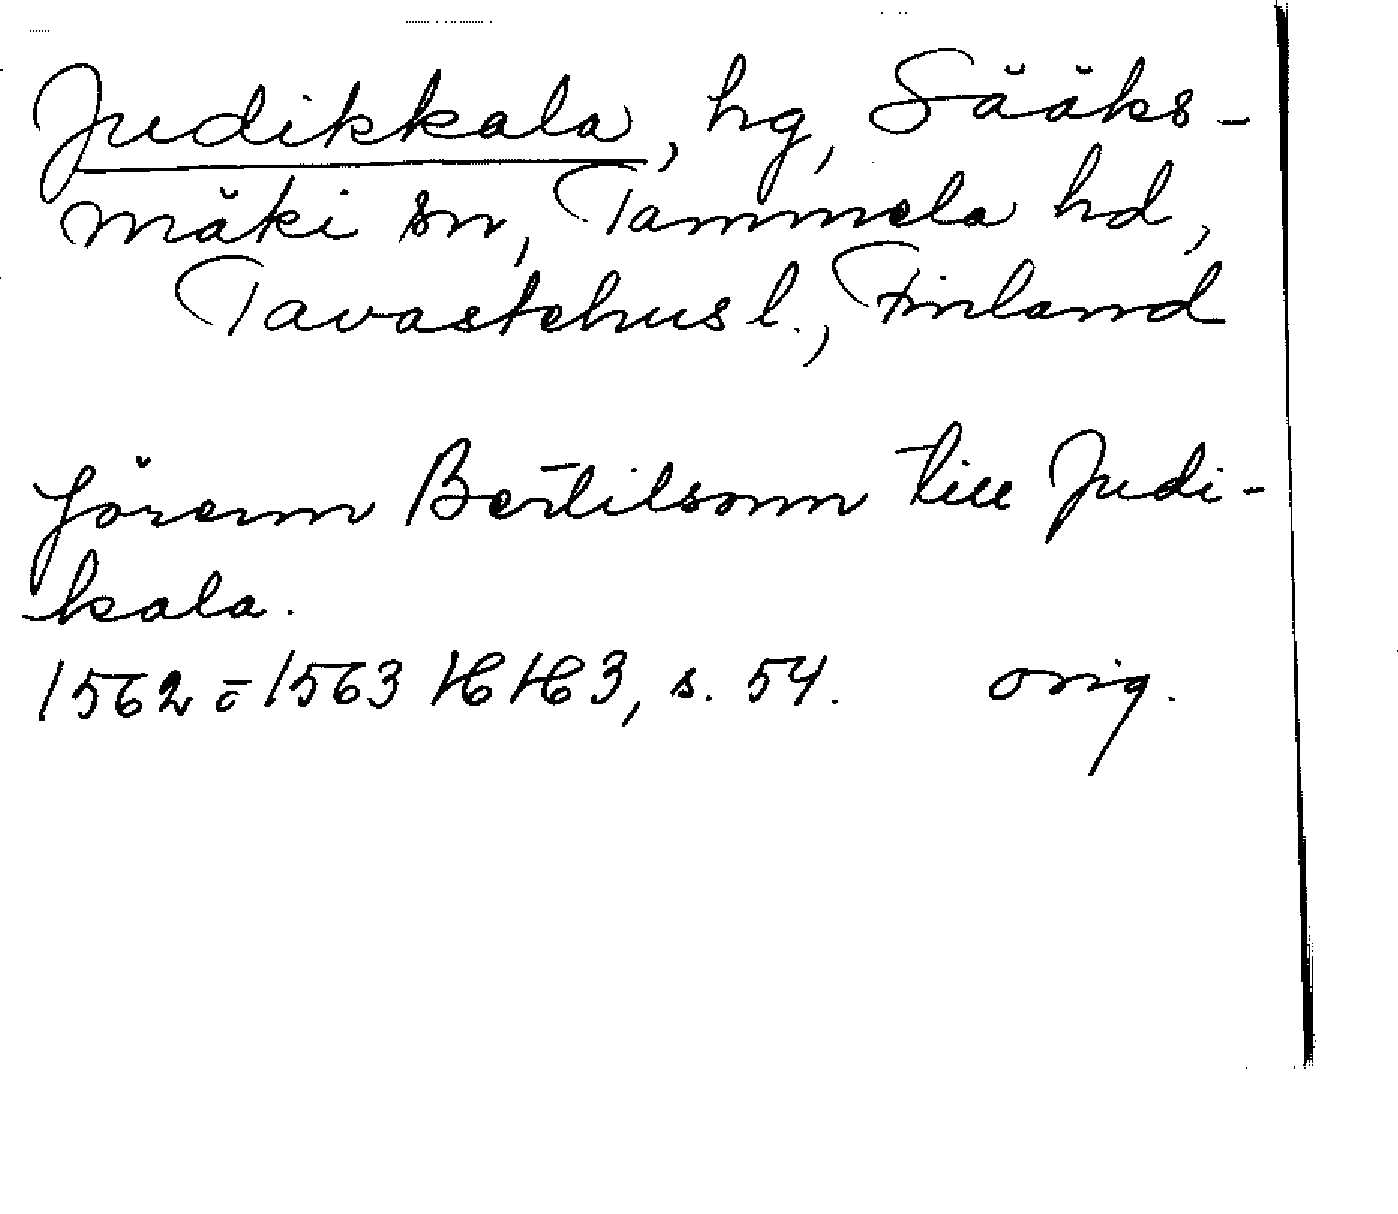 Judikkala, hg, Sääks-
mäki sn, Tammela hd,
Tavastehus l., Finland
Jörenn Bertilsonn till Judi-
kala.
1562 ō 1563 HH 3, s. 54. orig.